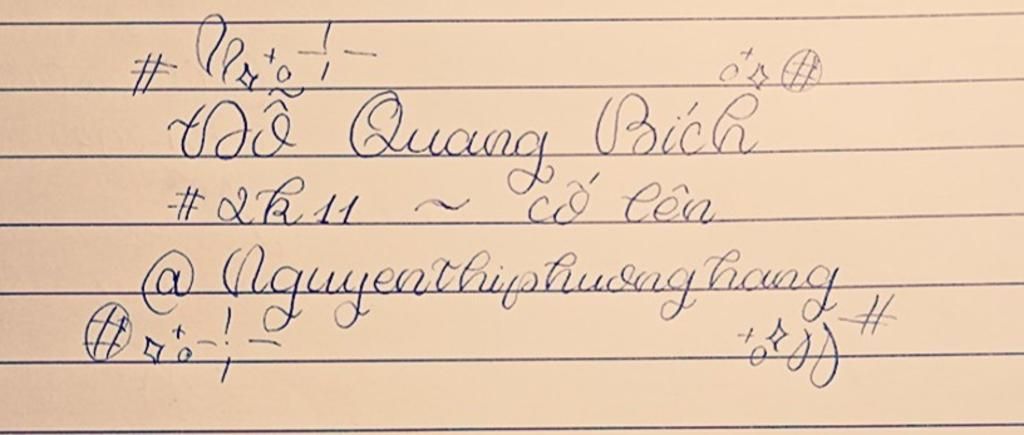 Đỗ Quang Bích
#2k11 ~ cố lên
@Nguyenthiphuonghang